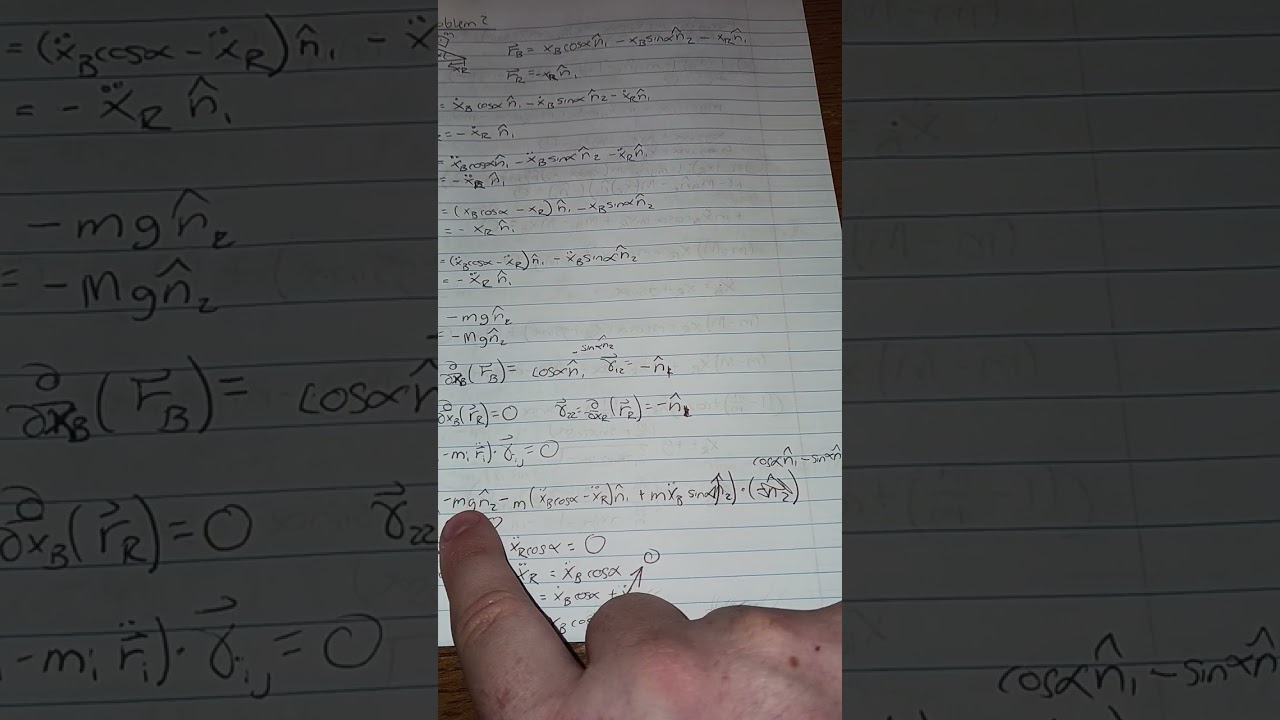 oblem 2
r⃗_B = x_B cosα n̂₁ − x_B sinα n̂₂ − x_R n̂₁
r⃗_R = −x_R n̂₁
= ẋ_B cosα n̂₁ − ẋ_B sinα n̂₂ − ẋ_R n̂₁
= −ẋ_R n̂₁
= ẍ_B cosα n̂₁ − ẍ_B sinα n̂₂ − ẍ_R n̂₁
= −ẍ_R n̂₁
= (x_B cosα − x_R) n̂₁ − x_B sinα n̂₂
= − x_R n̂₁
= (ẍ_B cosα − ẍ_R) n̂₁ − ẍ_B sinα n̂₂
= − ẍ_R n̂₁
−mg n̂₂
= −Mg n̂₂
− sinα n̂₂
∂/∂x_B (r⃗_B) = cosα n̂, γ⃗₁₂ = −n̂₁
∂/∂x_B (r⃗_R) = 0 γ⃗₂₂ = ∂/∂x_R (r⃗_R) = −n̂₁
−m_i r̈⃗_i) · γ⃗_ij = 0
cosα n̂₁ − sinα n̂
−mg n̂₂ − m(ẍ_B cosα − ẍ_R) n̂₁ + mẍ_B sinα n̂₂) · (
ẍ_R cosα = 0
ẍ_R = ẍ_B cosα
= ẍ_B cosα +
x_B cos